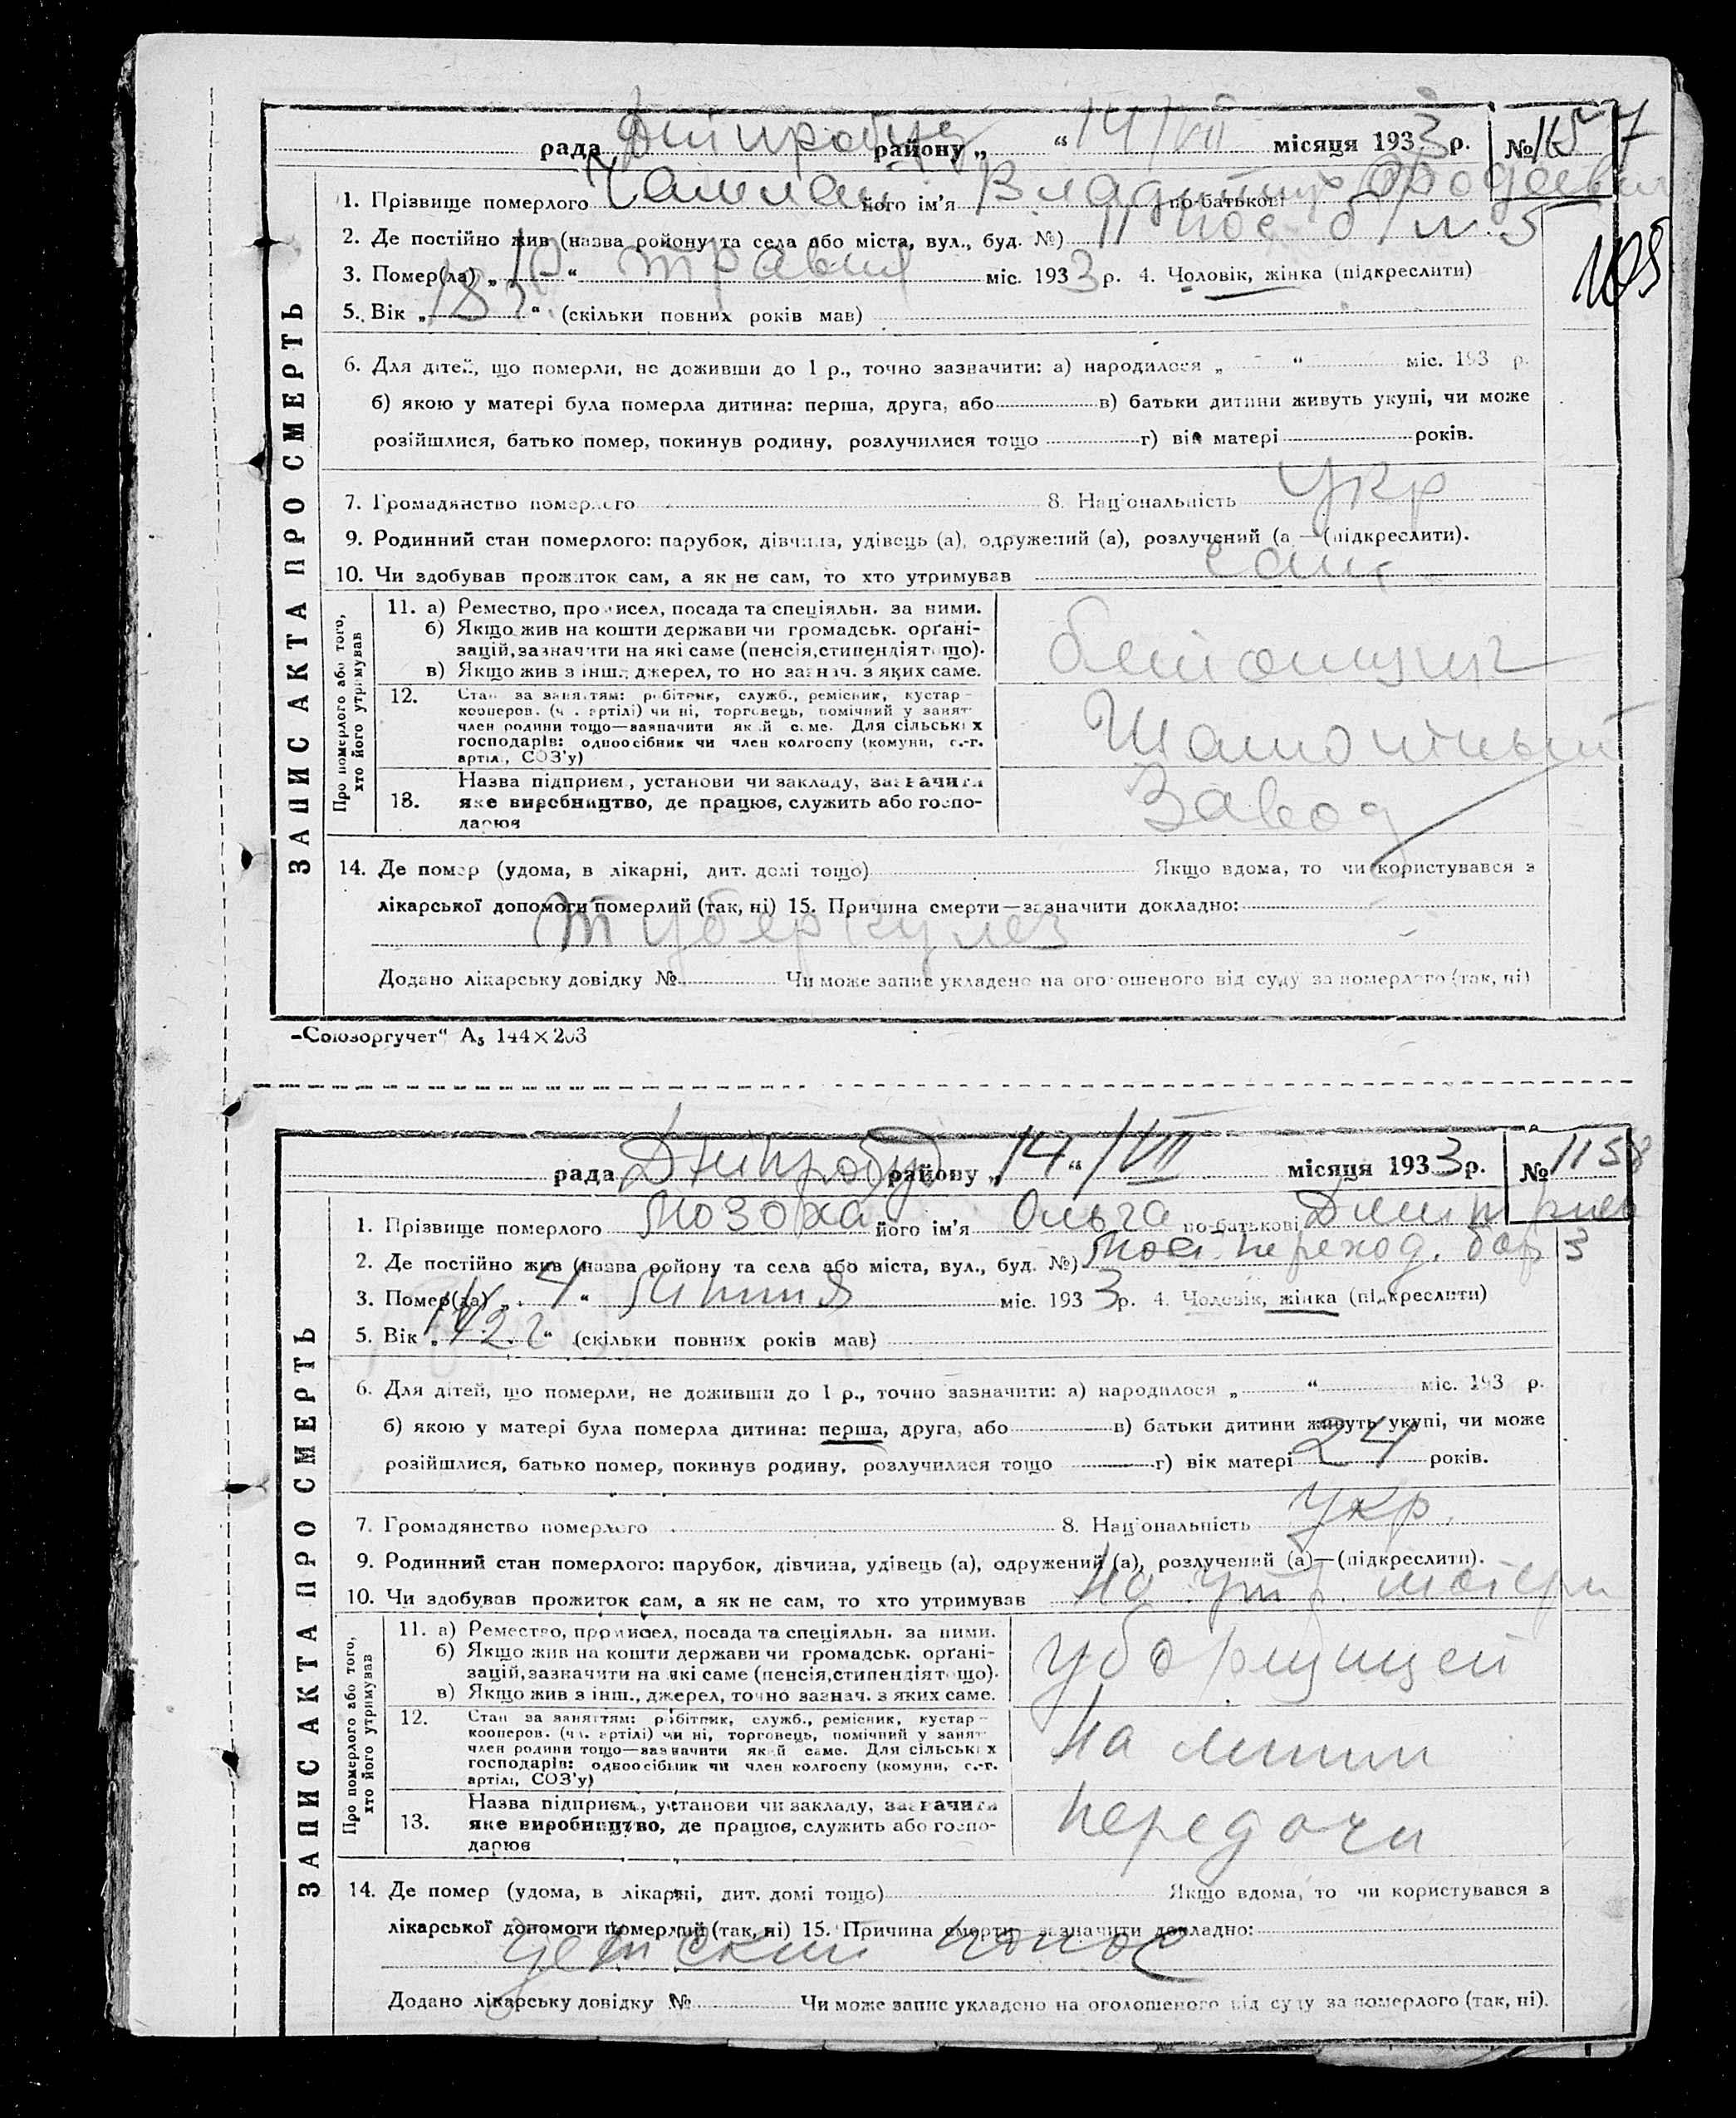 рада Дніпробуд району „ “ 14/VII місяця 1933 р. № 1157
1. Прізвище померлого його ім'я Владимир по-батькові
2. Де постійно жив (назва району та села або міста, вул., буд. №) 11 пос. б. 5
105
3. Помер(ла) „ “ травня міс. 1933 р. 4. Чоловік, жінка (підкреслити)
5. Вік „ “ (скільки повних років мав)
6. Для дітей, що померли, не доживши до 1 р., точно зазначити: а) народилося „ “ міс. 193 р.
б) якою у матері була померла дитина: перша, друга, або в) батьки дитини живуть укупі, чи може
розійшлися, батько помер, покинув родину, розлучилися тощо г) вік матері років.
7. Громадянство померлого 8. Національність укр
9. Родинний стан померлого: парубок, дівчина, удівець (а), одружений (а), розлучений (а — (підкреслити).
10. Чи здобував прожиток сам, а як не сам, то хто утримував сам
ЗАПИС АКТА ПРО СМЕРТЬ
Про померлого або того, хто його утримував
11. а) Ремество, промисел, посада та спеціяльн. за ними.
б) Якщо жив на кошти держави чи громадськ. орґані-
зацій, зазначити на які саме (пенсія, стипендія тощо).
в) Якщо жив з інш., джерел, точно зазнач. з яких саме.
бетонщик
12. Стан за заняттям: робітник, служб., ремісник, кустар-
кооперов. (чл. артілі) чи ні, торговець, помічний у занят
член родини тощо—зазначити який саме. Для сільських
господарів: одноосібник чи член колгоспу (комуни, с.-г.
артіл, СОЗ'у)
Шамотный
13. Назва підприєм., установи чи закладу, зазначити
яке виробництво, де працює, служить або госпо-
дарює
Завод
14. Де помер (удома, в лікарні, дит. домі тощо) Якщо вдома, то чи користувався з
лікарської допомоги померлий (так, ні) 15. Причина смерти—зазначити докладно:
туберкулез
Додано лікарську довідку № Чи може запис укладено на оголошеного від суду за померлого (так, ні)
„Союзоргучет“ А₅ 144×203
рада Дніпробуд району „14“ /VII місяця 1933 р. № 1158
1. Прізвище померлого Мозоха його ім'я Ольга по-батькові Дмитриев
2. Де постійно жив (назва району та села або міста, вул., буд. №) переход. бар 3
3. Помер(ла) „ 4 “ липня міс. 1933 р. 4. Чоловік, жінка (підкреслити)
5. Вік „ “ (скільки повних років мав)
6. Для дітей, що померли, не доживши до 1 р., точно зазначити: а) народилося „ “ міс. 193 р.
б) якою у матері була померла дитина: перша, друга, або в) батьки дитини живуть укупі, чи може
розійшлися, батько помер, покинув родину, розлучилися тощо г) вік матері 24 років.
7. Громадянство померлого 8. Національність укр.
9. Родинний стан померлого: парубок, дівчина, удівець (а), одружений (а), розлучений (а)—(підкреслити).
10. Чи здобував прожиток сам, а як не сам, то хто утримував На утр. матери
ЗАПИС АКТА ПРО СМЕРТЬ
Про померлого або того, хто його утримував
11. а) Ремество, промисел, посада та спеціяльн. за ними.
б) Якщо жив на кошти держави чи громадськ. орґані-
зацій, зазначити на які саме (пенсія, стипендія тощо).
в) Якщо жив з інш., джерел, точно зазнач. з яких саме.
уборщицей
12. Стан за заняттям: робітник, служб., ремісник, кустар-
кооперов. (чл. артілі) чи ні, торговець, помічний у занят
член родини тощо—зазначити який саме. Для сільських
господарів: одноосібник чи член колгоспу (комуни, с.-г.
артілі, СОЗ'у)
На линии
13. Назва підприєм., установи чи закладу, зазначити
яке виробництво, де працює, служить або госпо-
дарює
передачи
14. Де помер (удома, в лікарні, дит. домі тощо) Якщо вдома, то чи користувався з
лікарської допомоги померлий (так, ні) 15. Причина смерти—зазначити докладно:
детский понос
Додано лікарську довідку № Чи може запис укладено на оголошеного від суду за померлого (так, ні).